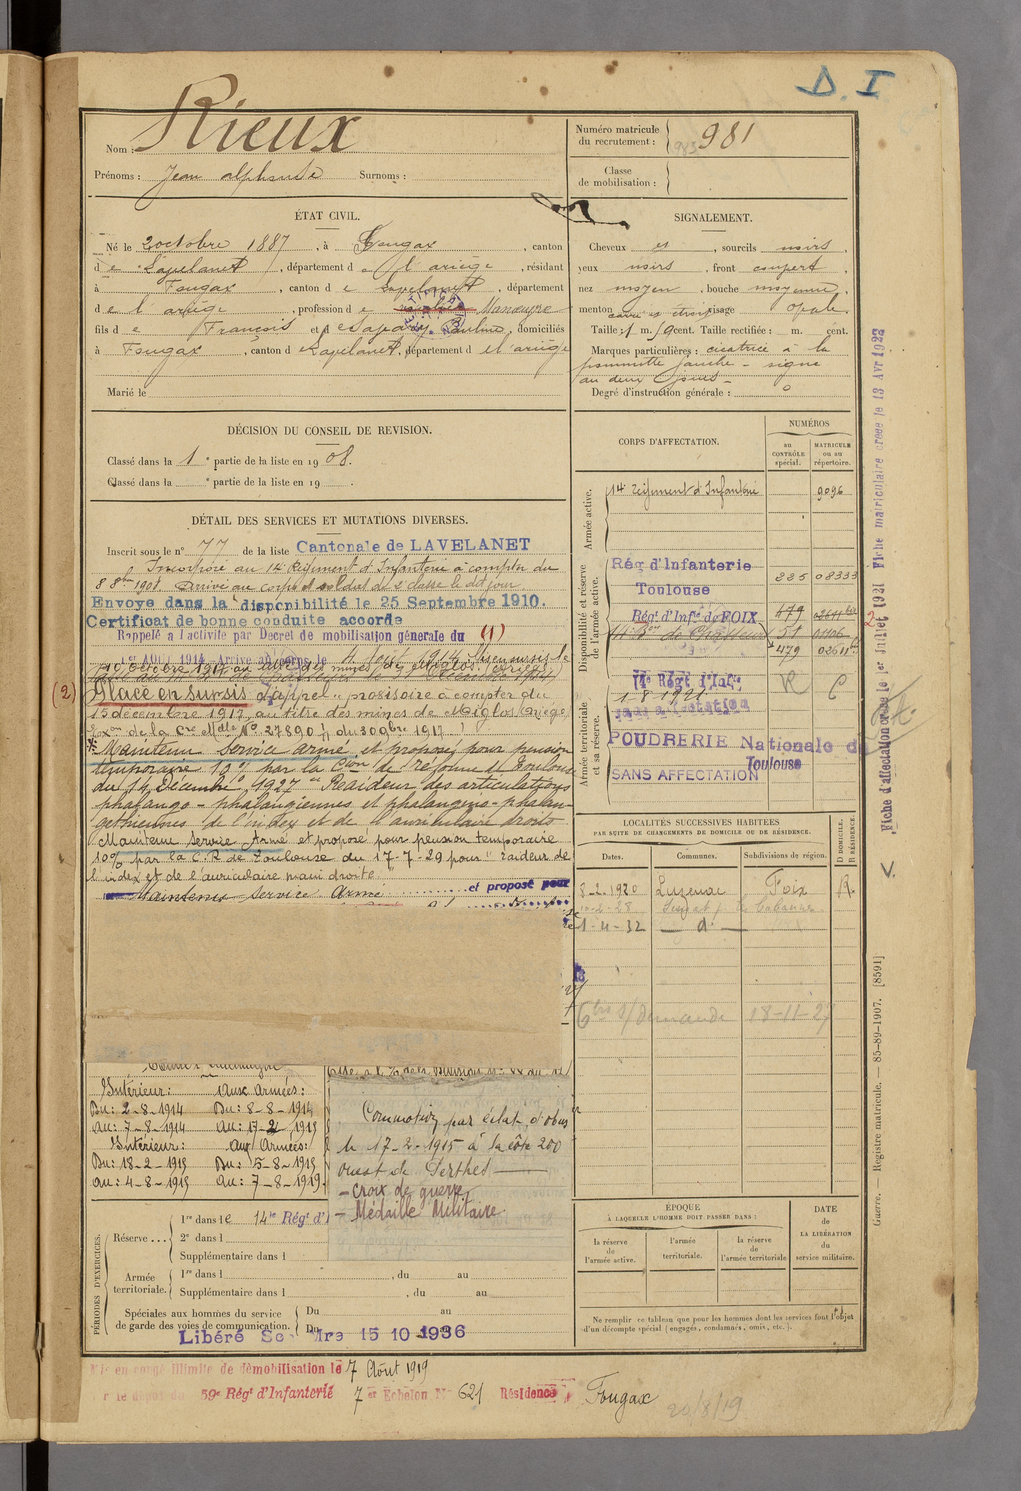 D. I
Nom : Rieux
Prénoms : Jean alphonse Surnoms :
Numéro matricule du recrutement : 981
Classe de mobilisation :
ÉTAT CIVIL.
Né le 2 octobre 1887, à Fougax, canton
de Lavelanet, département de l'ariège, résidant
à Fougax, canton de Lavelanet, département
de l'ariège, profession de Manœuvre
fils de François et de Pauline, domiciliés
à Fougax, canton de Lavelanet, département de l'ariège
Marié le
SIGNALEMENT.
Cheveux et, sourcils noirs,
yeux noirs, front couvert,
nez moyen, bouche moyenne,
menton visage ovale.
Taille : 1 m. cent. Taille rectifiée : m. cent.
Marques particulières : cicatrice à la
pommette gauche - signe
au deux
Degré d'instruction générale : 0
DÉCISION DU CONSEIL DE REVISION.
Classé dans la 1e partie de la liste en 1908.
Classé dans la e partie de la liste en 19 .
DÉTAIL DES SERVICES ET MUTATIONS DIVERSES.
Inscrit sous le no 77 de la liste Cantonale de LAVELANET
Incorporé au 14e Régiment d'Infanterie à compter du
8 8bre 1908. Arrivé au corps et soldat de 2e classe le dit jour
Envoyé dans la disponibilité le 25 Septembre 1910.
Certificat de bonne conduite accordé
Rappelé à l'activité par Décret de mobilisation générale du (1)
1er AOUT 1914. Arrivé au corps le
(2) Placé en sursis d'appel provisoire à compter du
15 décembre 1917, au titre des mines de Miglos (Ariège)
No 37890 du 30 9bre 1917
Maintenu Service armé et proposé pour pension
temporaire 10% par la Con de réforme de Toulouse
du 14 Décembre 1927 Raideur des articulations
phalango-phalangiennes et phalangino-phalan-
gettiennes de l'index et de l'auriculaire droits
Maintenu Service Armé et proposé pour pension temporaire
10% par la C.R. de Toulouse du 17-7-29 pour "raideur de
l'index et de l'auriculaire main droite."
Maintenu service armé et proposé pour
Intérieur : Aux armées :
Du : 2-8-1914 Du : 8-8-1914
au : 7-8-1914 au : 17-2-1915
Intérieur : aux Armées :
Du : 18-2-1915 Du : 5-8-1915
au : 4-8-1915 au : 7-8-1919.
Commotion par éclat d'obus
le 17-2-1915 à la côte 200
ouest de Perthes
- Croix de guerre
- Médaille Militaire
CORPS D'AFFECTATION.
NUMÉROS
au CONTRÔLE spécial.
MATRICULE ou au répertoire.
Armée active.
14e Régiment d'Infanterie 9096
Disponibilité et réserve de l'armée active.
Rég d'Infanterie
Toulouse 08333
Régt d'Infie de FOIX 479
51
479
Armée territoriale et sa réserve.
14e Régt d'Infie
1 8 1921
sans affectation
POUDRERIE Nationale de
Toulouse
SANS AFFECTATION
LOCALITÉS SUCCESSIVES HABITÉES
PAR SUITE DE CHANGEMENTS DE DOMICILE OU DE RÉSIDENCE.
Dates. Communes. Subdivisions de région. D DOMICILE. R RÉSIDENCE.
8-2-1920 Luzenac Foix R.
1-4-32 — d° —
demande 18-11-27
ÉPOQUE
À LAQUELLE L'HOMME DOIT PASSER DANS :
la réserve de l'armée active.
l'armée territoriale.
la réserve de l'armée territoriale
DATE de LA LIBÉRATION du service militaire.
Ne remplir ce tableau que pour les hommes dont les services font l'objet
d'un décompte spécial (engagés, condamnés, omis, etc.).
PÉRIODES D'EXERCICES.
Réserve ... 1re dans le 14e Régt d'I
2e dans l
Supplémentaire dans l
Armée territoriale. 1re dans l , du au
Supplémentaire dans l , du au
Spéciales aux hommes du service de garde des voies de communication.
Du au
Du
Libéré 15 10 1936
en congé illimité de démobilisation le 7 Août 1919
59e Régt d'Infanterie 7e Echelon No 621 Résidence Fougax
20/8/19
Fiche d'affectation créée le 1er Juillet 1921 Fiche matriculaire créée le 13 Avr 1922
Guerre. — Registre matricule. — 85-89-1907. [8591]